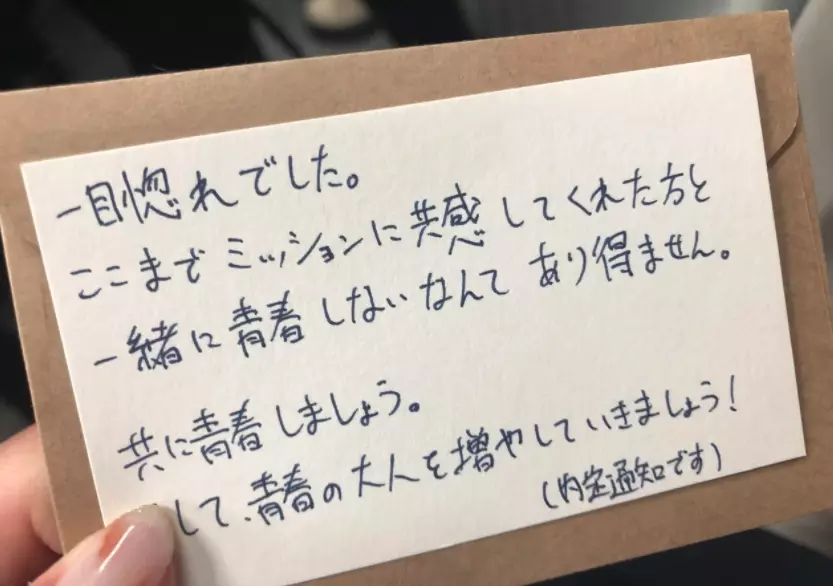 一目惚れでした。
ここまでミッションに共感してくれた方と
一緒に青春しないなんてあり得ません。
共に青春しましょう。
して、青春の大人を増やしていきましょう!
(内定通知です)